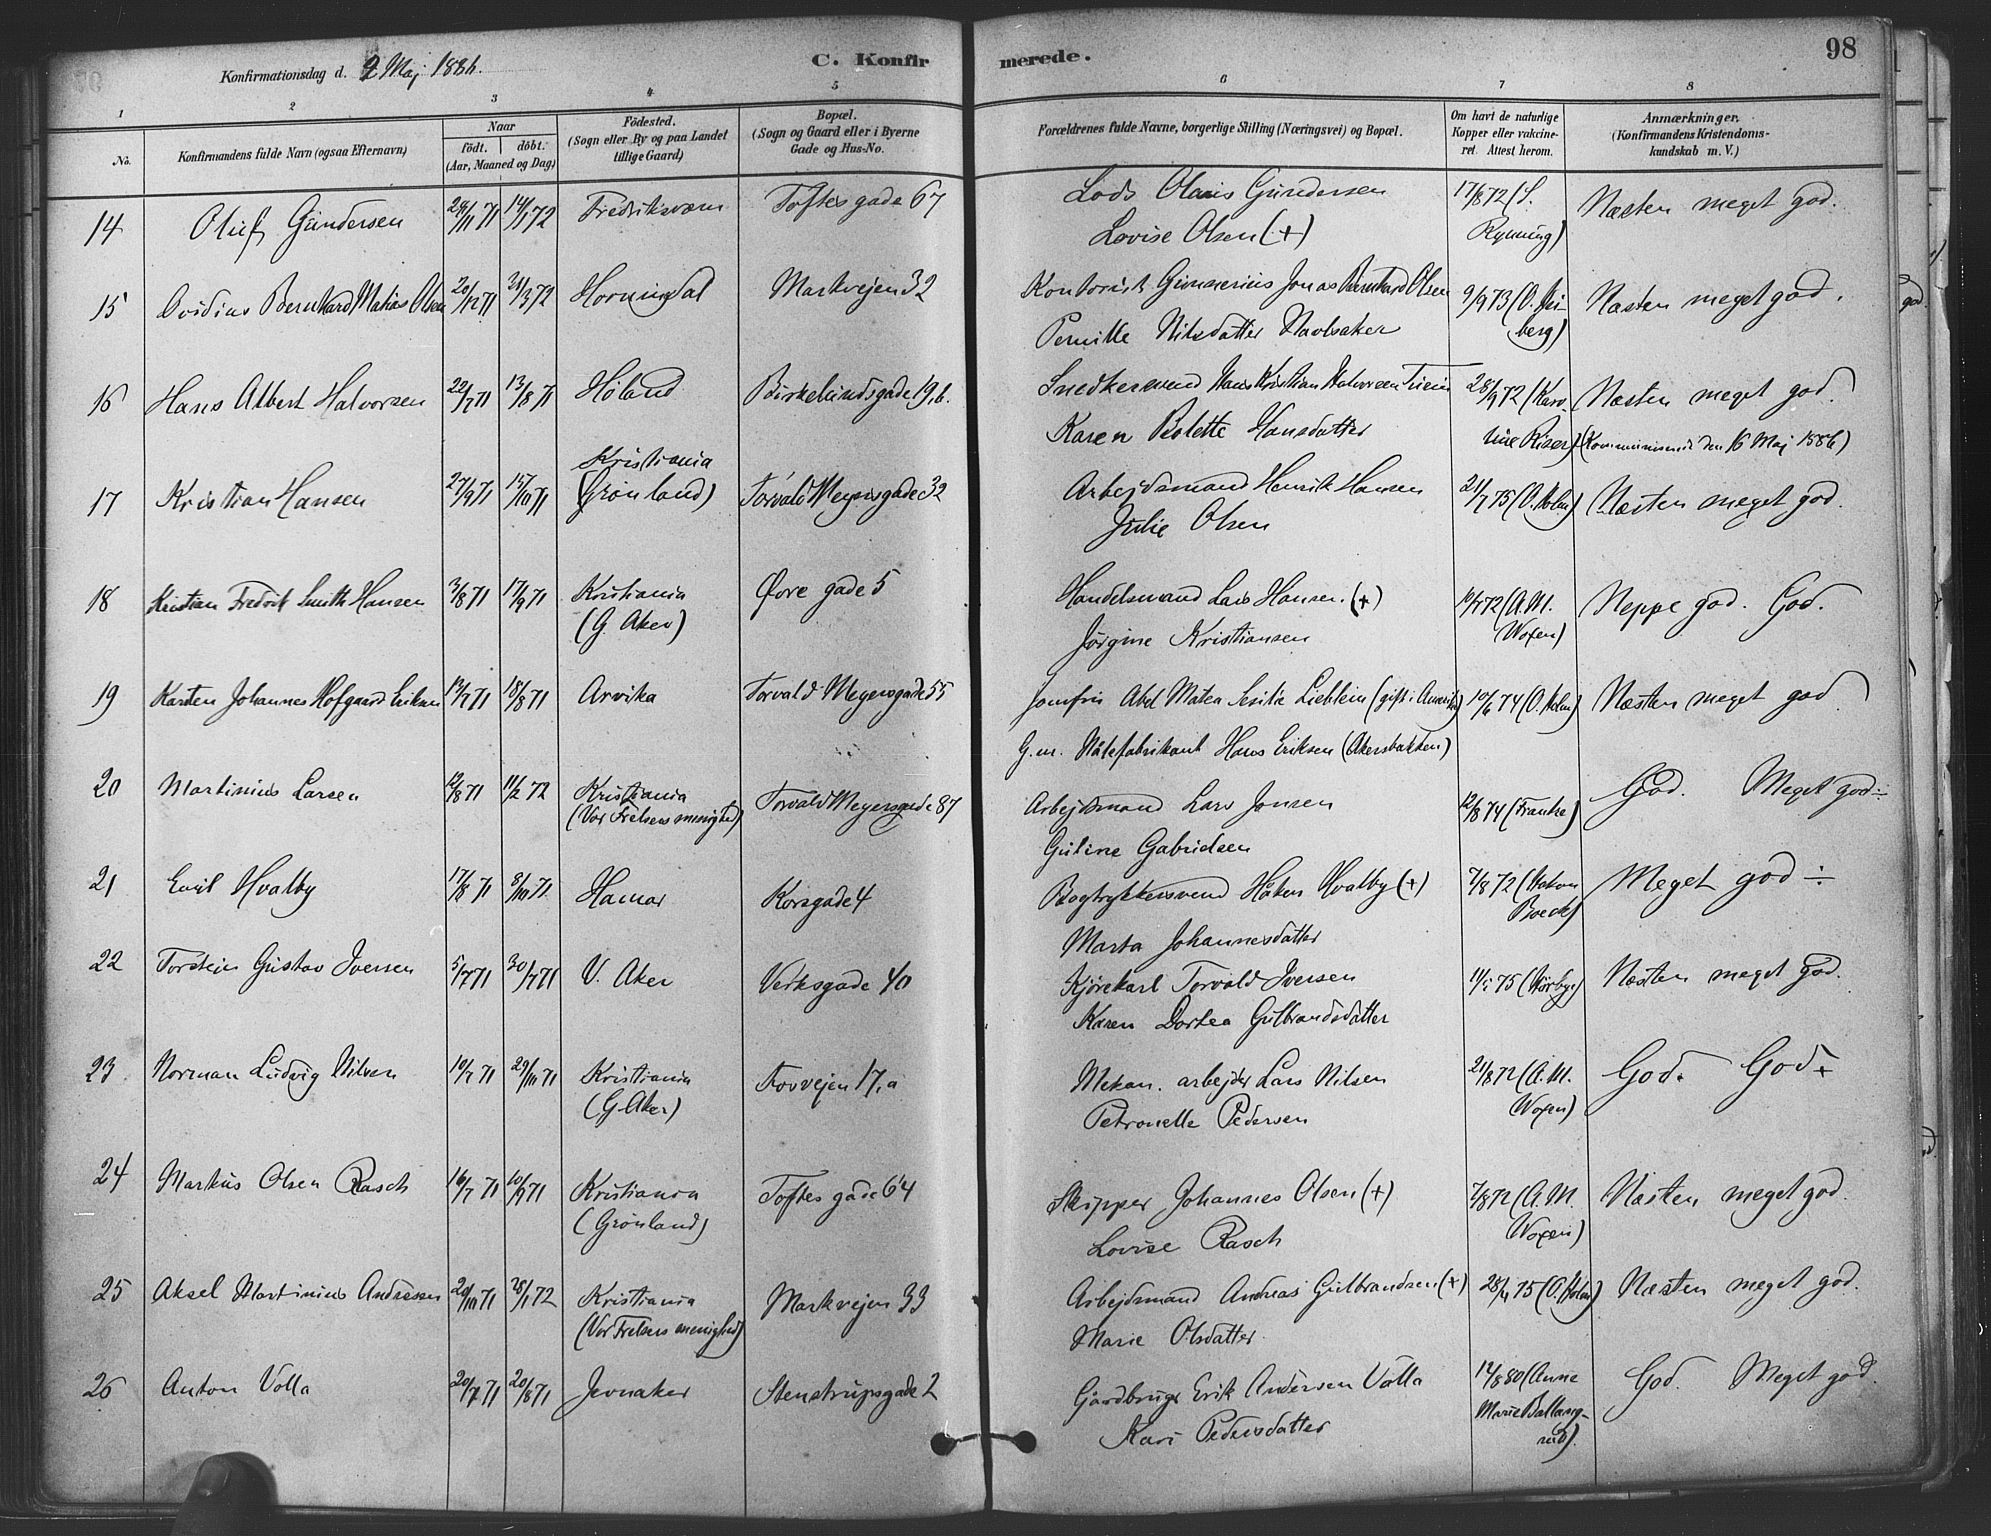 Konfirmationsdag d. 2 Maj 1886.
C. Konfirmerede.
98
1 2 3 4 5 6 7 8
No. Konfirmandens fulde Navn (ogsaa Efternavn) Naar født. døbt. (Aar, Maaned og Dag) Födested. (Sogn eller By og paa Landet tillige Gaard) Bopæl. (Sogn og Gaard eller i Byerne Gade og Hus-No. Forældrenes fulde Navne, borgerlige Stilling (Næringsvei) og Bopæl. Om havt de naturlige Kopper eller vaccineret. Attest herom. Anmærkninger. (Konfirmandens Kristendomskundskab m. V.)
14 Oluf Gundersen 29/11 71 14/1 72 Fredriksværn Toftes gade 67 Lods Olaus Gundersen 17/8 72 (S. Næsten meget god.
Lovise Olsen (+) Rynning)
15 Ovidius Bernhard Matias Olsen 20/12 71 31/3 72 Hornindal Markvejen 32 Kontorist Gunnerius Jonas Bernhard Olsen 9/9 73 (O. Næsten meget god.
Pernille Nilsdatter Navlsaker berg)
16 Hans Albert Halvorsen 22/7 71 13/8 71 Höland Birkelundsgade 19,b. Snedkersvend Hans Kristian Halvorsen 28/9 72 (Karo- Næsten meget god.
Karen Bolette Hansdatter line Riser) (Kommuniserede den 16 Maj 1886)
17 Kristian Hansen 27/9 71 15/10 71 Kristiania (Grønland) Torvald Meyersgade 32 Arbejdsmand Henrik Hansen 21/7 75 (O. Holm) Næsten meget god.
Julie Olsen
18 Kristian Fredrik Smith Hansen 3/8 71 17/9 71 Kristiania (G. Aker) Øvre gade 5 Handelsmand Lars Hansen (+) 10/7 72 (A.M. Neppe god. God.
Jørgine Kristiansen Woxen)
19 Karsten Johannes Hofgaard Eriksen 13/7 71 18/8 71 Arvika Torvald Meyersgade 55 Jomfru Abel Matea Lieblein (gift i Amerika) 10/6 74 (O. Holm) Næsten meget god
G.m. Nålefabrikant Hans Eriksen (Akersbakken)
20 Martinius Larsen 12/8 71 11/2 72 Kristiania (Vor Frelsers menighed) Torvald Meyersgade 87 Arbejdsmand Lars Jensen 12/8 74 (Frantze) God. Meget god÷
Guline Gabrielsen
21 Emil Hvalby 17/8 71 8/10 71 Hamar Korsgade 4 Bogtrykkersvend Håken Hvalby (+) 7/8 72 (Hakon Meget god ÷
Marta Johannesdatter Boeck)
22 Torstein Gustav Iversen 5/7 71 30/7 71 V. Aker Verksgade 40 Kjörekarl Torvald Iversen 75 Næsten meget god.
Karen Dortea Gulbrandsdatter
23 Norman Ludvig Nilsen 10/7 71 29/10 71 Kristiania (G. Aker) Fossvejen 17,a Mekan. arbejder Lars Nilsen 21/8 72 (A.M. God. God+
Petronelle Pedersen Woxen)
24 Markus Olsen Rasch 16/7 71 10/9 71 Kristiania (Grønland) Toftes gade 64 Skipper Johannes Olsen (+) 7/8 72 (A.M. Næsten meget god.
Lovise Rasch Woxen)
25 Aksel Martinius Andresen 20/10 71 28/1 72 Kristiania (Vor Frelsers menighed) Markvejen 33 Arbejdsmand Andreas Gulbrandsen (+) 28/4 75 (O. Holm) Næsten meget god.
Marie Olsdatter
26 Anton Volla 20/7 71 20/8 71 Jevnaker Stenstrupsgade 2 Gårdbruger Erik Andersen Volla 12/8 80 (Anne God. Meget god.
Kari Pedersdatter Marie Ballangrud).